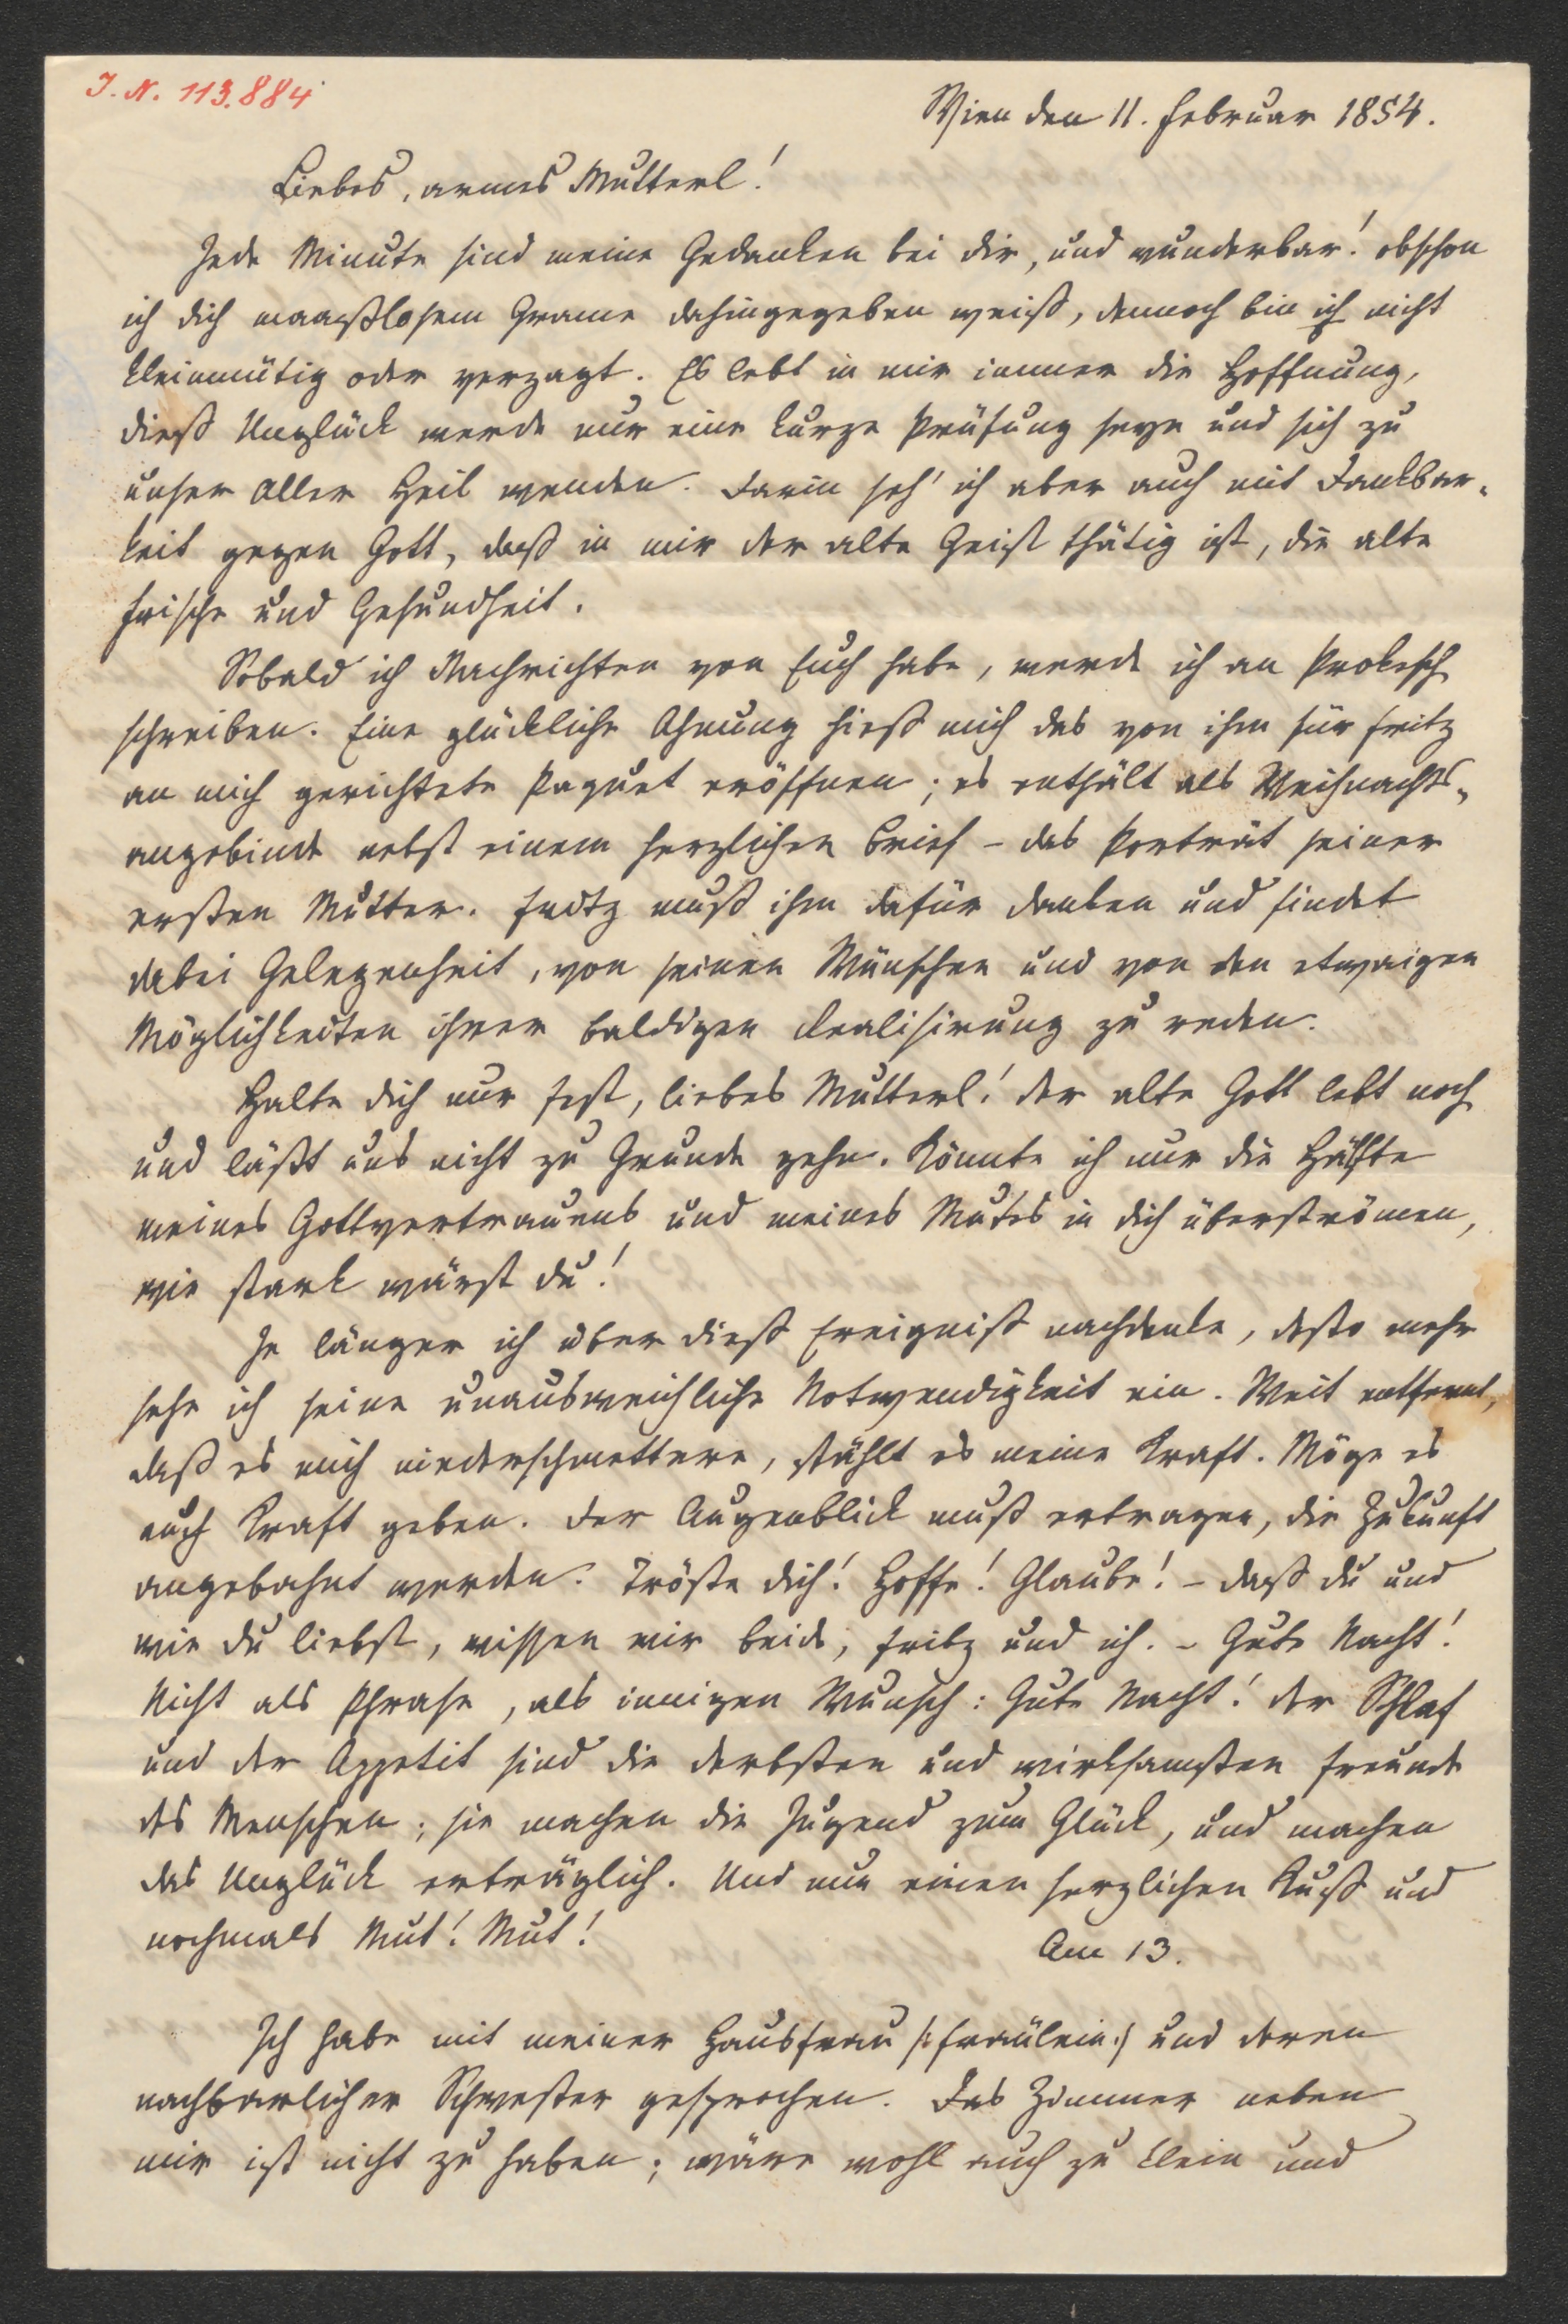 I. N. 113.884
Wien den 11. Februar 1854.
Liebes, armes Mutterl!
Jede Minute sind meine Gedanken bei dir, und wunderbar! obschon
ich dich maaßlosem Grame dahingegeben weiß, dennoch bin ich nicht
kleinmütig oder verzagt. Es lebt in mir immer die Hoffnung,
dieß Unglück werde nur eine kurze Prüfung seyn und sich zu
unser Aller Heil wenden. Darin seh' ich aber auch mit Dankbar-
keit gegen Gott, daß in mir der alte Geist thätig ist, die alte
Frische und Gesundheit.
Sobald ich Nachrichten von Euch habe, werde ich an Prokesch
schreiben. Eine glückliche Ahnung hieß mich das von ihm für Fritz
an mich gerichtete Paquet eröffnen; es enthält als Weihnachts-
angebinde nebst einem herzlichen Brief – das Porträt seiner
ersten Mutter. Fritz muß ihm dafür danken und findet
dabei Gelegenheit, von seinen Wünschen und von den etwaigen
Möglichkeiten ihrer baldigen Realisirung zu reden.
Halte dich nur fest, liebes Mutterl! der alte Gott lebt noch
und läßt uns nicht zu Grunde gehn. Könnte ich nur die Hälfte
meines Gottvertrauens und meines Mutes in dich überströmen,
wie stark wärst du!
Je länger ich über dieß Ereigniß nachdenke, desto mehr
sehe ich seine unausweichliche Notwendigkeit ein. Weit entfernt,
daß es mich niederschmettere, stählt es meine Kraft. Möge es
euch Kraft geben. Der Augenblick muß ertragen, die Zukunft
angebahnt werden. Tröste dich! Hoffe! Glaube! – daß du und
wie du liebst, wissen wir beide, Fritz und ich. – Gute Nacht!
Nicht als Phrase, als innigen Wunsch: Gute Nacht! der Schlaf
und der Appetit sind die derbsten und wirksamsten Freunde
des Menschen; sie machen die Jugend zum Glück, und machen
das Unglück erträglich. Und nun einen herzlichen Kuß und
nochmals Mut! Mut!
Am 13.
Ich habe mit meiner Hausfrau /: Fräulein :/ und deren
nachbarlicher Schwester gesprochen. Das Zimmer neben
mir ist nicht zu haben; wäre wohl auch zu klein und